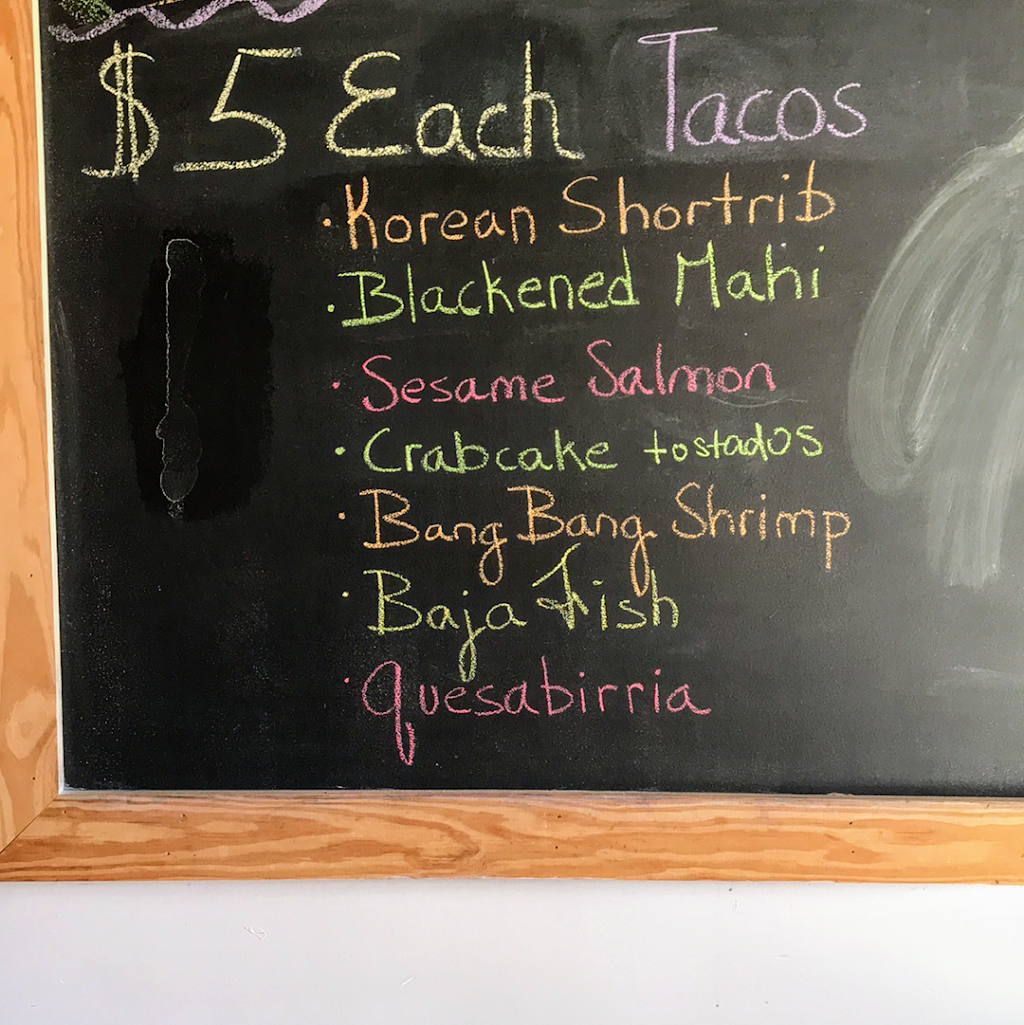 $5 Each Tacos
· Korean Shortrib
· Blackened Mahi
· Sesame Salmon
· Crabcake tostados
· Bang Bang Shrimp
· Baja Fish
· Quesabirria